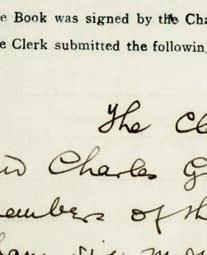 e Book was signed by the Cha
e Clerk submitted the followin
The Cl
Charles G
members of th